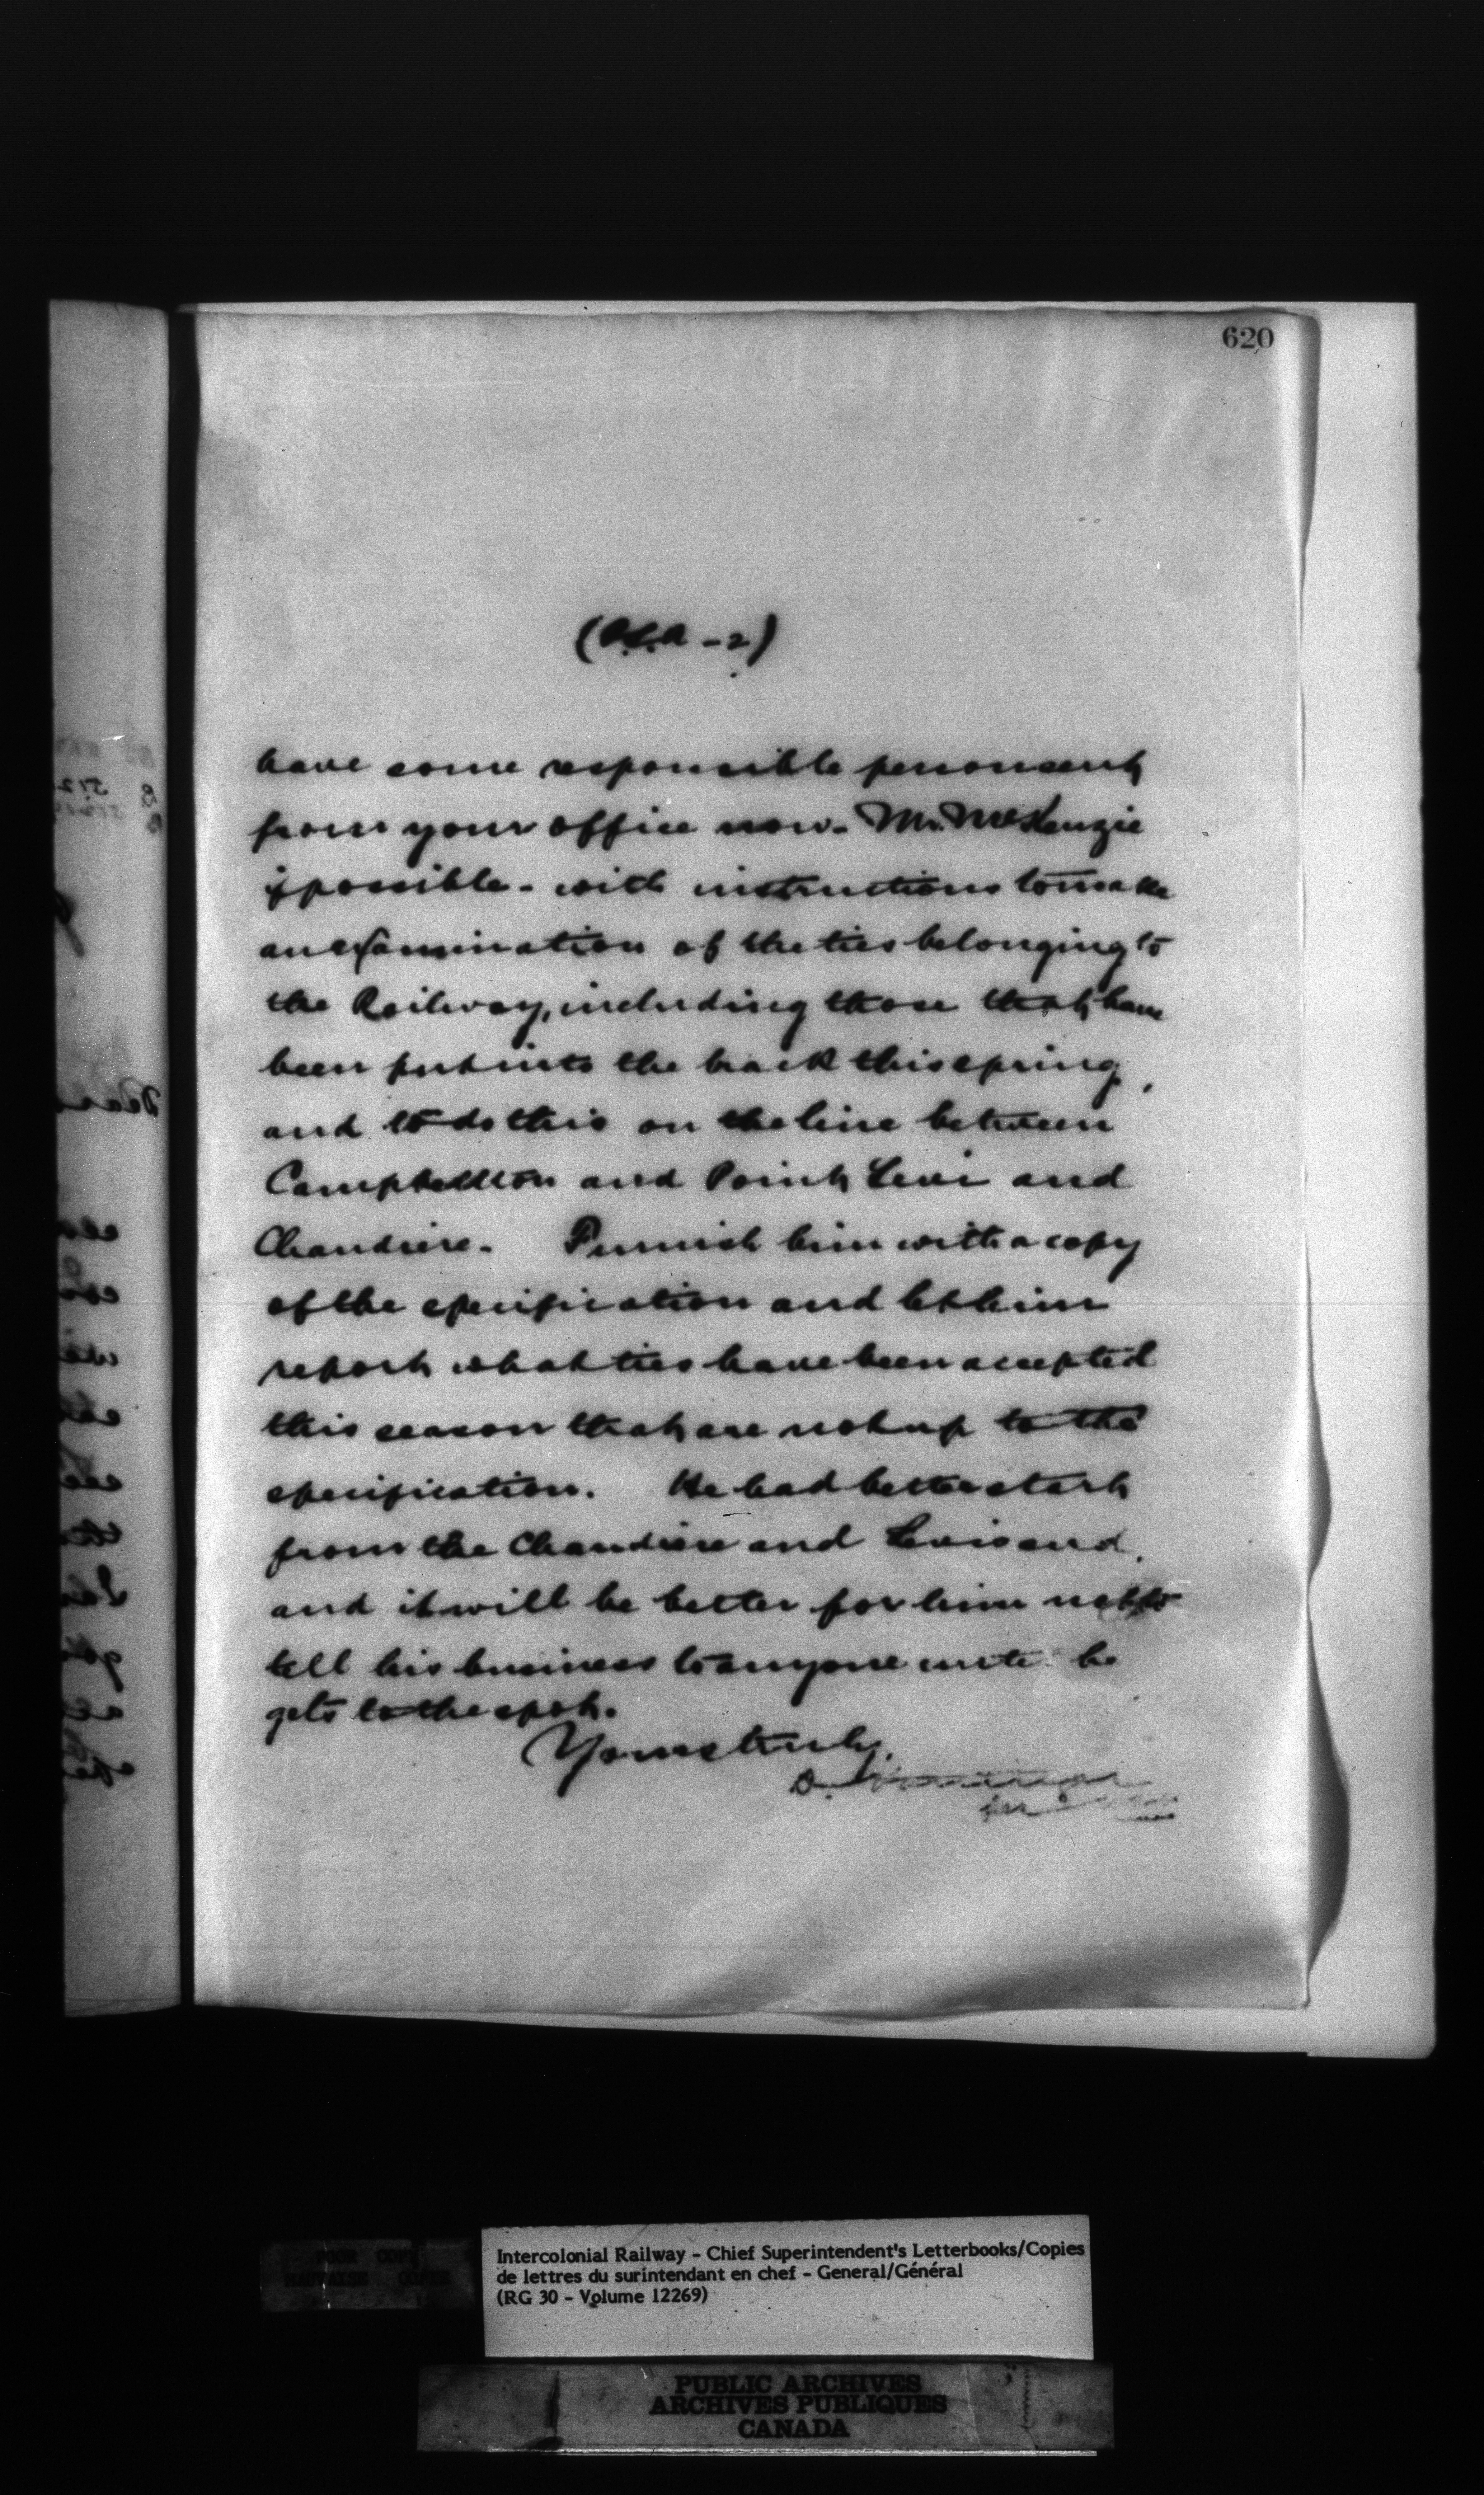 620
(P.S.A - 2)
have some responsible person sent
from your office now - Mr. McKenzie
if possible - with instructions to make
an examination of the ties belonging to
the Railway, including those that have
been put into the track this spring,
and to do this on the line between
Campbellton and Point Levi and
Chaudiere. Furnish him with a copy
of the specification and let him
report what ties have been accepted
this season that are not up to the
specification. He had better start
from the Chaudiere and Levis end,
and it will be better for him not to
tell his business to anyone until he
gets to the spot.
Yours truly,
D.
per
POOR COPY
MAUVAISE COPIE
Intercolonial Railway - Chief Superintendent's Letterbooks/Copies
de lettres du surintendant en chef - General/Général
(RG 30 - Volume 12269)
PUBLIC ARCHIVES
ARCHIVES PUBLIQUES
CANADA